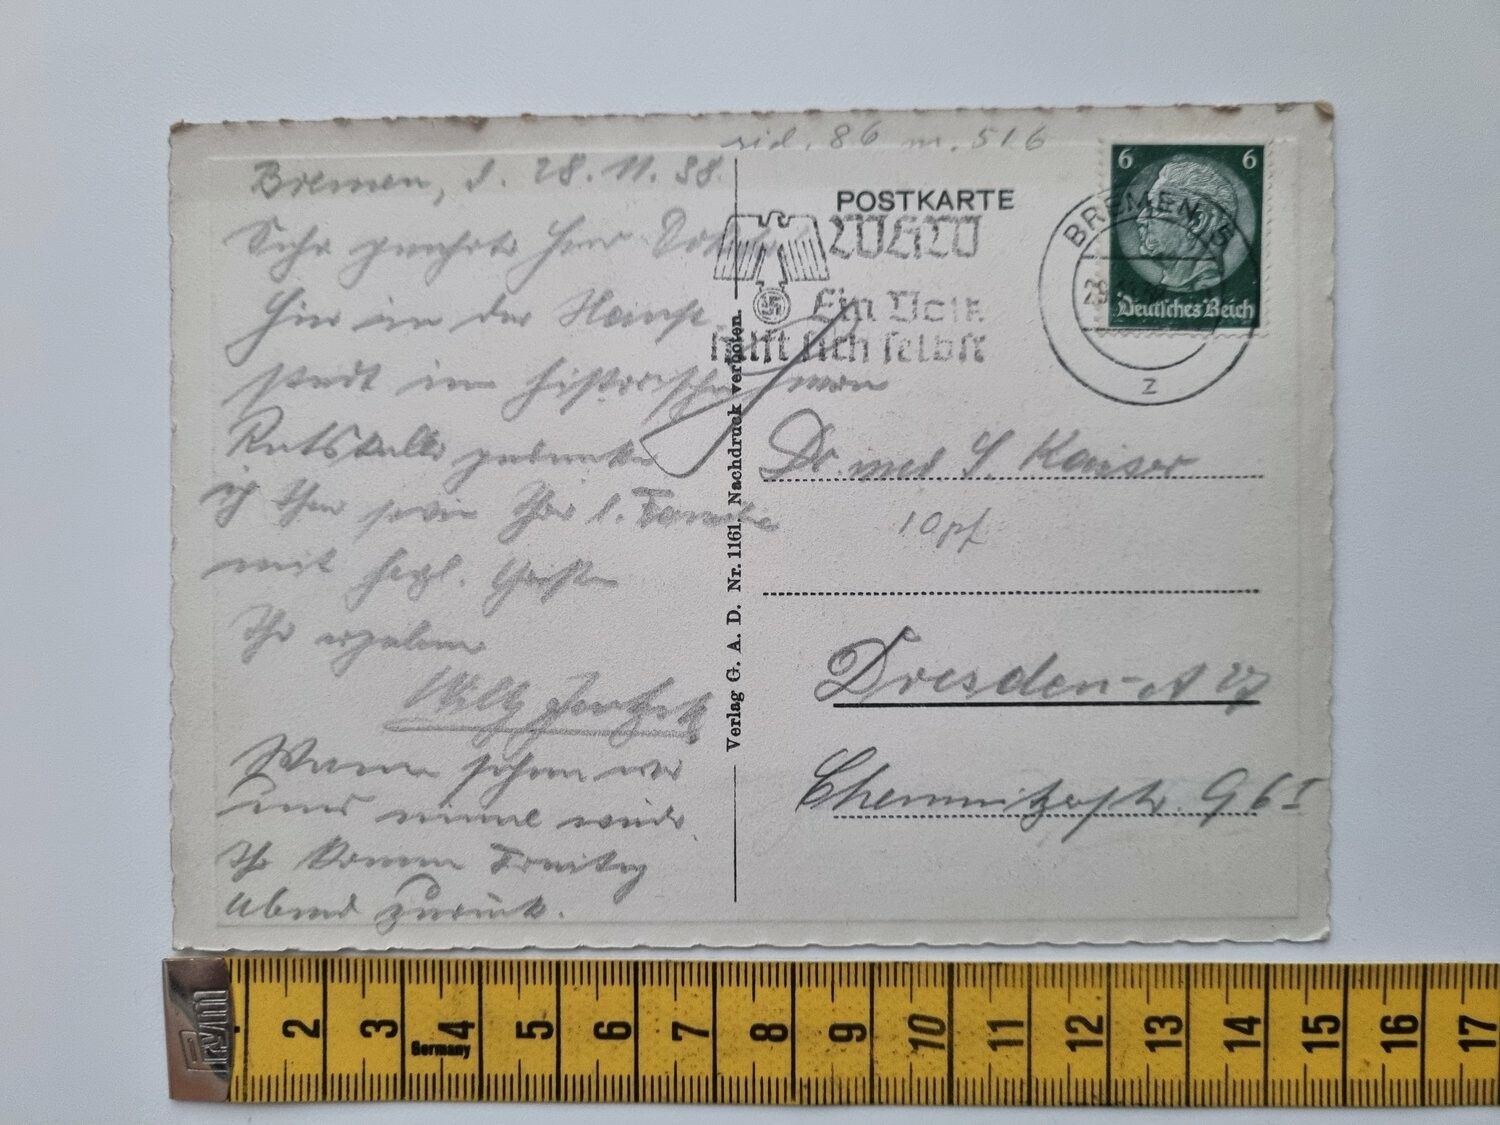 rid. 86 nr. 516
Bremen, d. 28.11.38.
Sehr geehrter Herr Doktor
Hier in der Hansa
stadt im historischen
Ratskeller gedenke
ich Ihrer sowie Ihrer l. Familie
mit herzl. Grüßen
Ihr ergebener
Willy
Wann sehen wir
uns einmal wieder.
Ich komme Freitag
Abend zurück.
Verlag G. A. D. Nr. 1161. Nachdruck verboten.
POSTKARTE
WHW
Ein Volk
hilft sich selbst
BREMEN 5
Z
6 6
Deutsches Reich
Dr. med S. Kaiser
10 pf
Dresden-A 27
Chemnitzerstr. 96 I
Prym
2 3 4 5 6 7 8 9 10 11 12 13 14 15 16 17
Germany